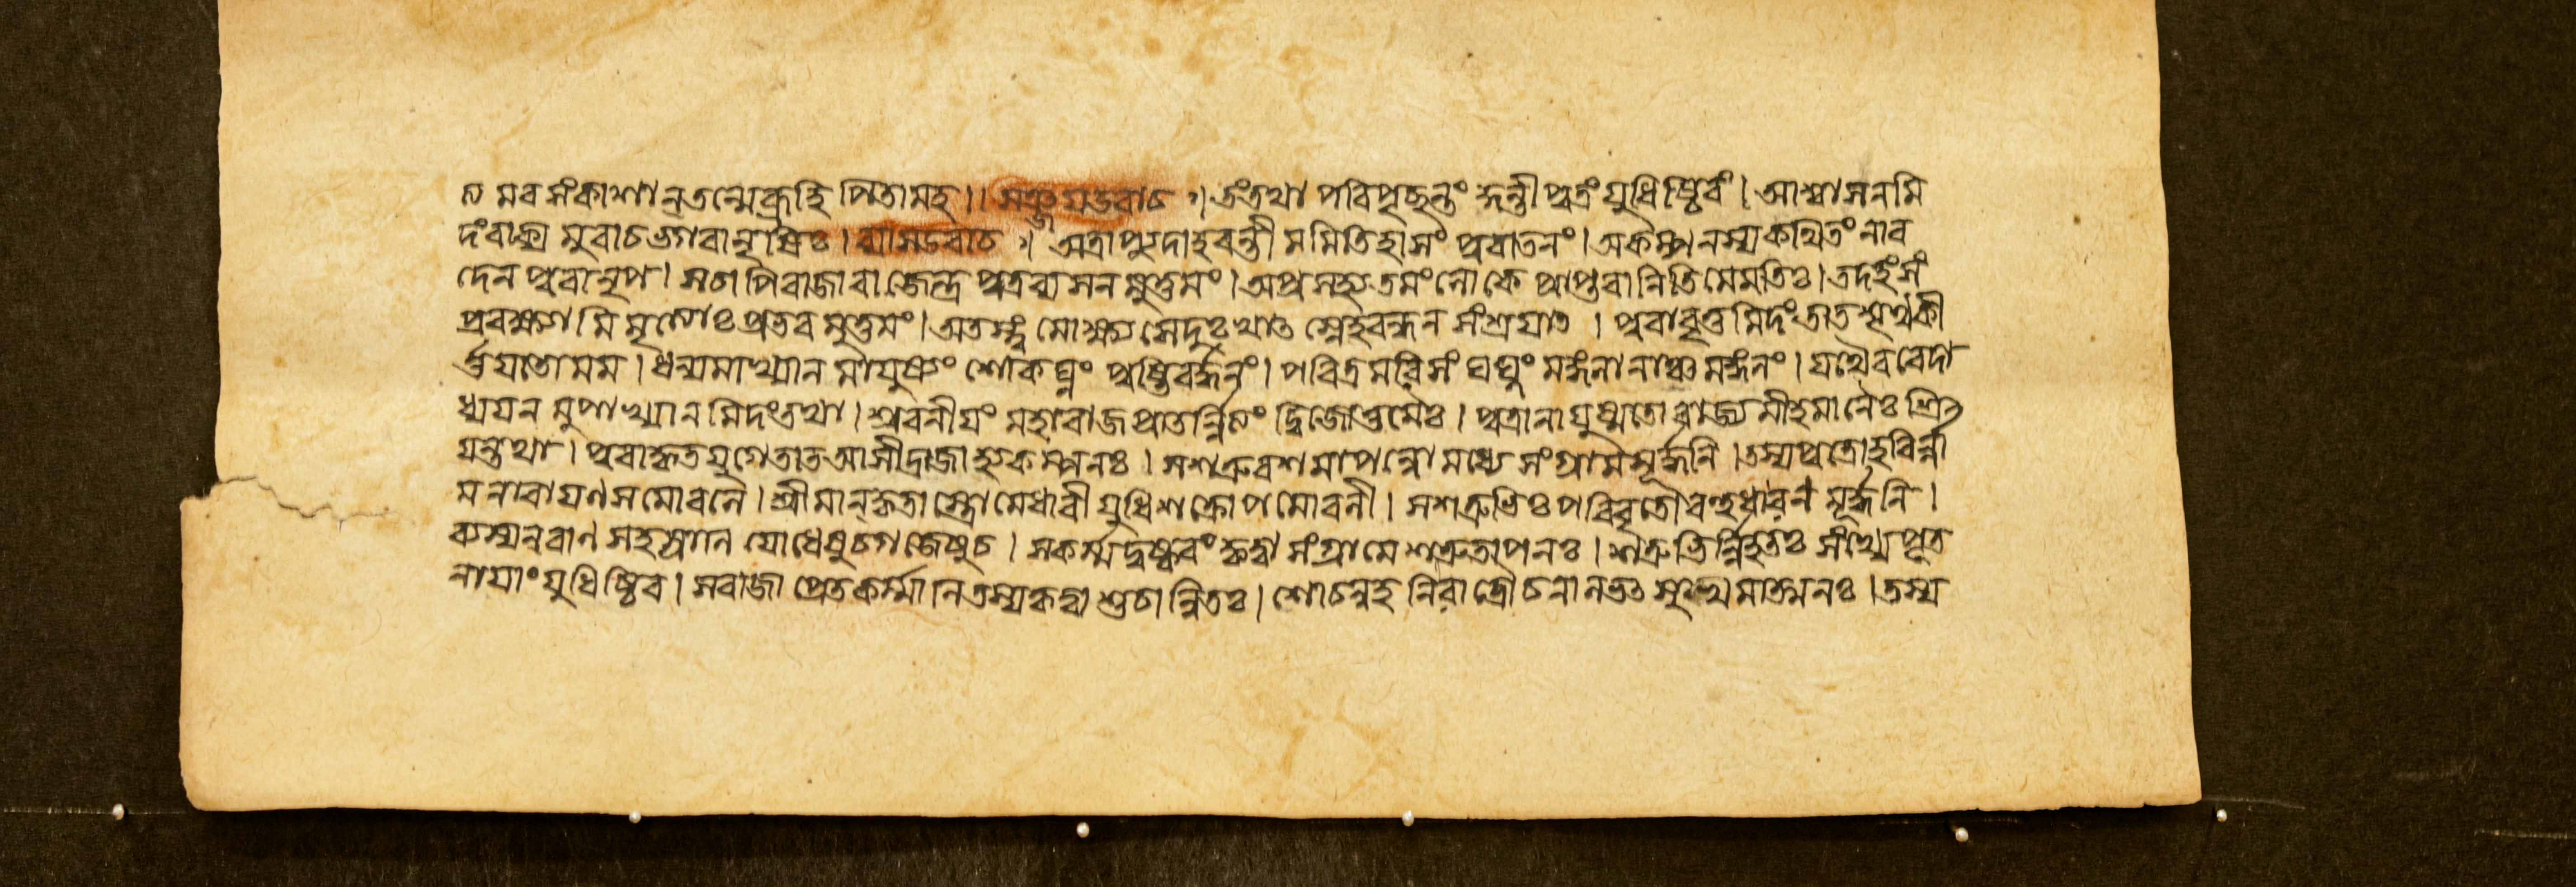 ন মর সংকাশান্ তন্মে ব্রূহি পিতামহ।। সঞ্জয় উবাচ।। তং তথা পরিপৃচ্ছন্তং কুন্তীপুত্রং যুধিষ্ঠিরং। আশ্বাসনমি
দং বাক্য মুবাচ ভগবানৃষিঃ। ব্যাস উবাচ।। অত্রাপ্যুদাহরন্তী মমিতিহাসং পুরাতনং। অকম্পনস্য কথিতং নার
দেন পুরা নৃপ। স চাপি রাজা রাজেন্দ্র পুত্রব্যসন মুত্তমং। অপ্রসহ্যতমং লোকে প্রাপ্তবানিতি মে মতিঃ। তদহং সং
প্রবক্ষ্যামি মৃত্যোঃ প্রভব মুত্তমং। অতস্ত্বং মোক্ষ্যসে দুঃখাৎ স্নেহবন্ধন সংশ্রয়াত। পুরাবৃত্তমিদং তাত শৃণু কী
র্ত্তয়তো মম। ধন্যমাখ্যান মায়ুষ্যং শোকঘ্নং পুষ্টিবর্দ্ধনং। পবিত্রমরিসংঘঘ্নং মঙ্গলানাঞ্চ মঙ্গলং। যথৈব বেদা
ধ্যয়ন মুপাখ্যানমিদং তথা। শ্রবনীয়ং মহারাজ প্রাতর্ন্নিত্যং দ্বিজোত্তমৈঃ। পুত্রানায়ুষ্মতো রাজ্য মীহমানৈঃ শ্রি
য়ন্তথা। পুরা কৃতযুগে তাত আসীদ্রাজা হ্যকম্পনঃ। স শত্রুবশমাপন্নো মধ্যে সংগ্রামমূর্দ্ধনি। তস্য পুত্রো হরির্ন্না
ম নারায়ণ সমো বলে। শ্রীমান্ কৃতাস্ত্রো মেধাবী যুধি শক্রোপমো বলী। স শত্রুভিঃ পরিবৃতো বহুধা রণমূর্দ্ধনি।
ব্যস্যন্ বাণ সহস্রানি যোধেষু চ গজেষু চ। স কর্ম্ম দুষ্করং কৃত্বা সংগ্রামে শত্রুতাপনঃ। শত্রুভির্ন্নিহতঃ সংখ্যে পৃত
নায়াং যুধিষ্ঠির। স রাজা প্রেতকর্ম্মানি তস্য কৃত্বা শুচান্বিতঃ। শোচন্নহনি রাত্রৌ চ নালভৎ সুখমাত্মনঃ। তস্য